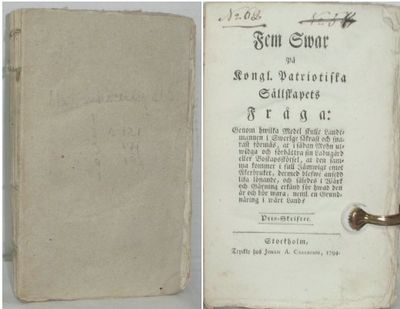 No. 62.
Fem Swar
på
Kongl. Patriotiska
Sällskapets
Fråga:
Genom hwilka Medel skulle Landt-
mannen i Swerige säkrast och sna-
rast förmås, at i sådan Mohn ut-
widga och förbättra sin Ladugård
eller Boskapsskötsel, at den sam-
ma kommer i full Jämwigt emot
Åkerbruket, dermed blefwe ansedd
lika lönande, och således i Wärk
och Gärning erkänd för hwad den
är och bör wara, neml. en Grund-
näring i wårt Land?
Pris-Skrifter.
Stockholm,
Tryckt hos Johan A. Carlbohm, 1794.